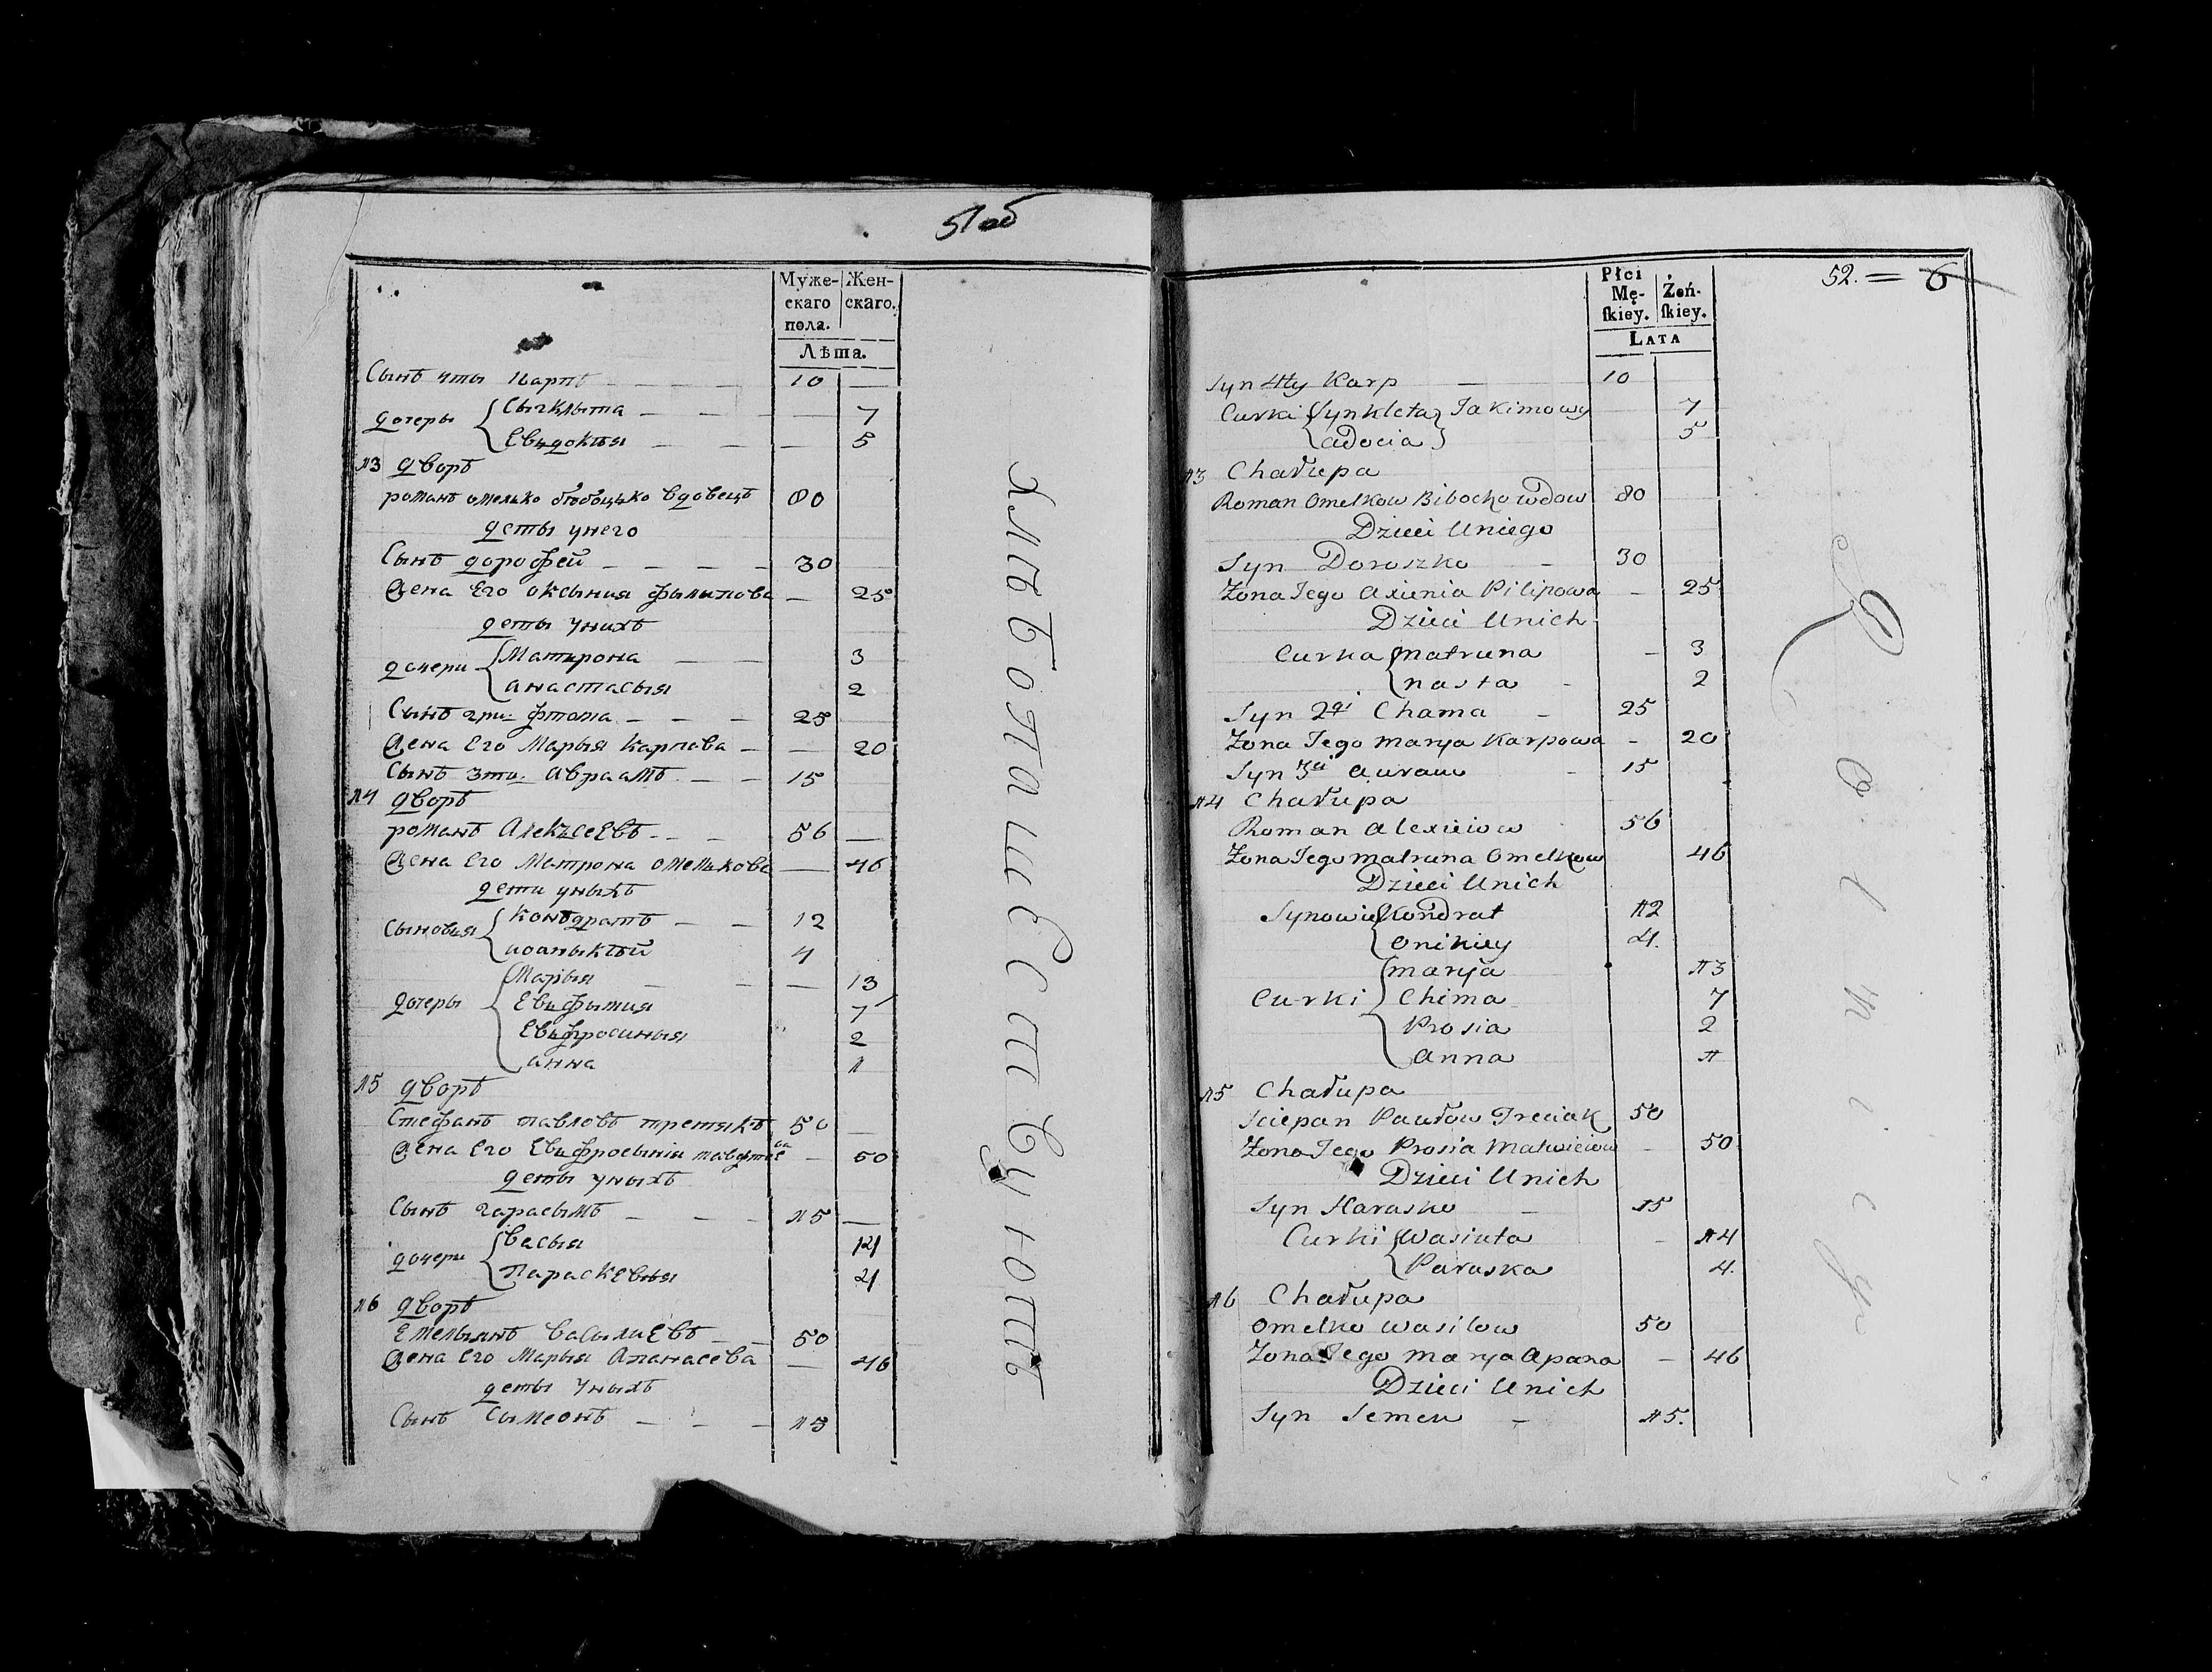 51 об
Муже-
скаго
пола.
Жен-
скаго.
Лѣта.
Сынъ 4ты Карпъ 10
дочеры Сынклыта 7
Евъдокия 5
13 дворъ
романъ омелько бибоцько вдовецъ 80
деты унего
Сынъ дорофей 30
Жена Его оксыния фылипова 25
деты унихъ
дочери Матърона 3
анастасыя 2
Сынъ 2ги фтома 25
Жена Его Марыя Карпова 20
Сынъ 3ти авраамъ 15
14 дворъ
романъ Алексеевъ 56
Жена Его Матрона омелькова 46
дети уныхъ
Сыновья Конъдратъ 12
иоаныкий 4
дочеры Марыя 13
Евъфымия 7
Евъфросиныя 2
анна 1
15 дворъ
Стефанъ павловъ третякъ 50
Жена Его Евъфросыния 50
деты уныхъ
Сынъ гарасымъ 15
дочери Васыя 14
Параскевыя 4
16 дворъ
Емельянъ Васылиевъ 50
Жена Его Марыя Апанасева 46
деты уныхъ
Сынъ Сымеонъ 15
хлѣбопашествуютъ
52. = 6
Płci
Mę-
skiey.
Żeń-
skiey.
Lata
Syn 4ty Karp 10
Curki Synkleta Jakimowy 7
Adocia 5
13 Chałupa
Roman Omelkow Bibocko wdow 80
Dzieci Uniego
Syn Doroszko 30
Żona Jego Axienia Pilipowa 25
Dzieci Unich
Curka Matruna 3
Nasta 2
Syn 2gi Chama 25
Żona Jego Marya Karpowa 20
Syn 3ci Auram 15
14 Chałupa
Roman Alexieiow 56
Żona Jego Matruna Omelkow 46
Dzieci Unich
Synowie Kondrat 12
Onikiey 4.
Marya 13
Curki Chima 7
Prosia 2
Anna 1
15 Chałupa
Sciepan Pawłow Treciak 50
Żona Jego Prosia Matwieiow 50
Dzieci Unich
Syn Harasko 15
Curki Wasiuta 14
Paraska 4.
16 Chałupa
Omelko Wasilow 50
Żona Jego Marya Apana 46
Dzieci Unich
Syn Semen 15.
Rolnicy